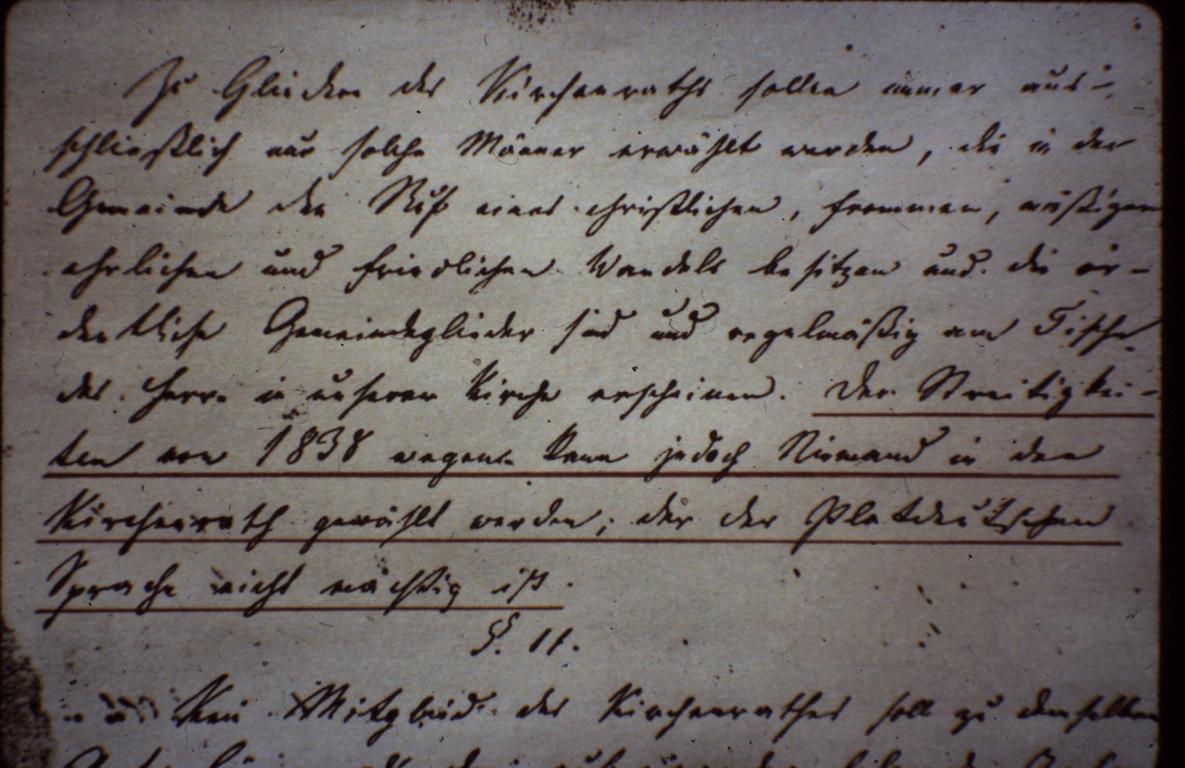 Zu Gliedern des Kirchenraths sollen immer aus-
schließlich nur solche Männer erwählt werden, die in der
Gemeinde den Ruf eines christlichen, frommen, mäßigen
ehrlichen und friedlichen Wandels besitzen und die or-
dentliche Gemeindeglieder sind und regelmäßig am Tische
des Herrn in unserer Kirche erscheinen. Der Streitigkei-
ten von 1838 wegen kann jedoch Niemand in den
Kirchenrath gewählt werden, der der Platdeutschen
Sprache nicht mächtig ist.
§. 11.
Kein Mitglied des Kirchenrathes soll zu demselben